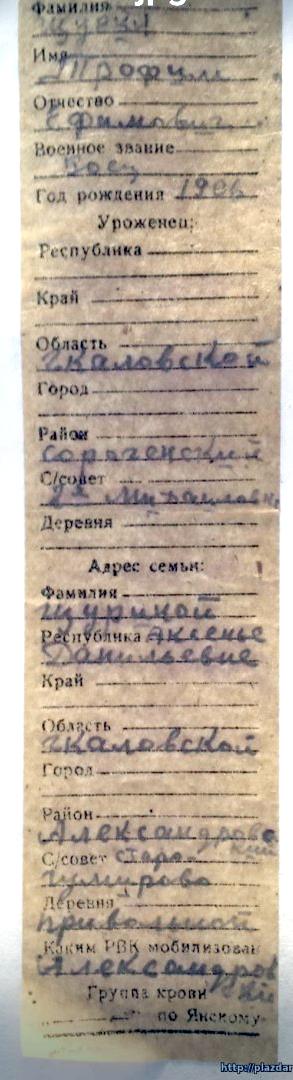 .jpg
Фамилия
Щурин
Имя
Трофим
Отчество
Ефимович
Военное звание
Боец
Год рождения 1906
Уроженец:
Республика
Край
Область
Чкаловской
Город
Район
Сороченский
С/совет
2я Михайловк
Деревня
Адрес семьи:
Фамилия
Щуриной
Республика Аксенье
Данильевне
Край
Область
Чкаловской
Город
Район
Александровс
кий
С/совет Старо-
Гумирово
Деревня
Привольной
Каким РВК мобилизован
Александров
ский
Группа крови
по Янскому
http://plazdar